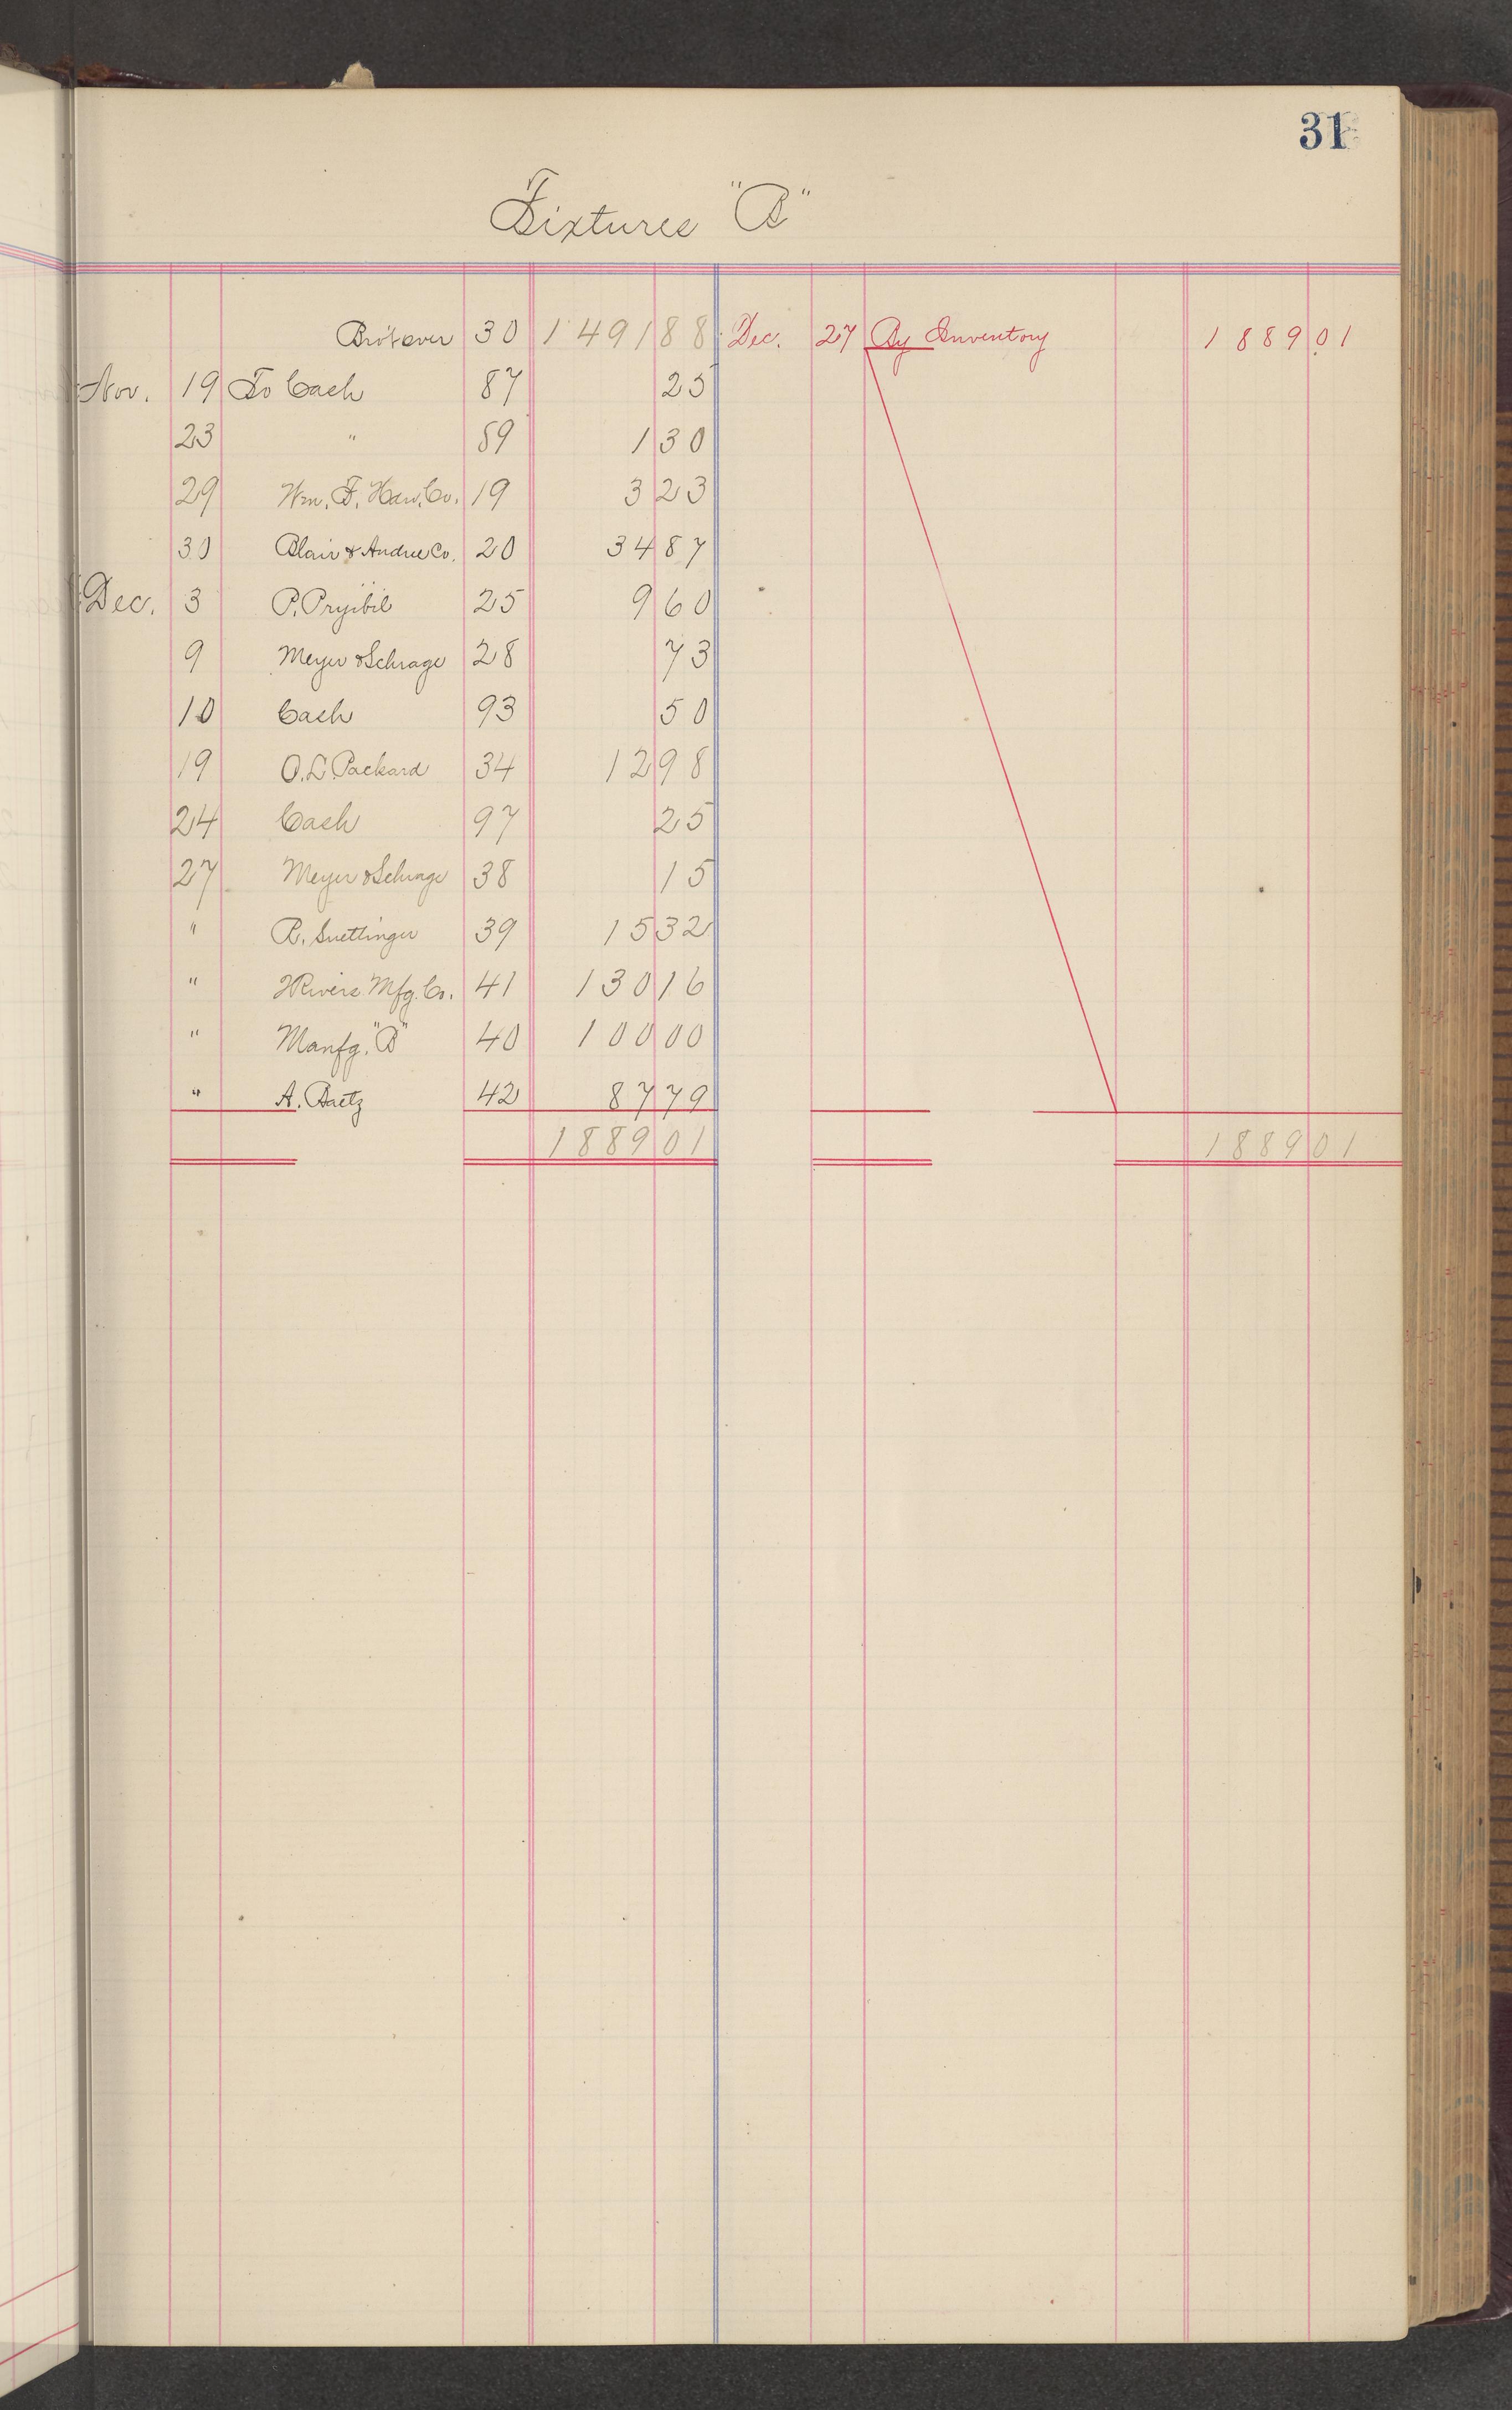 31
Fixtures "B"
Bro't over 30 1491 88 Dec. 27 By Inventory 1889 01
Nov. 19 To Cash 87 25
23 " 89 1 30
29 Wm. F. Haw. Co. 19 3 23
30 Blair & Andree Co. 20 34 87
Dec. 3 P. Pryibil 25 9 60
9 Meyer & Schrage 28 73
10 Cash 93 50
19 O. L. Packard 34 12 98
24 Cash 97 25
27 Meyer & Schrage 38 15
" R. Suettinger 39 15 32
" 2 Rivers Mfg. Co. 41 130 16
" Manfg. "B" 40 100 00
" A. Baetz 42 87 79
1889 01 1889 01